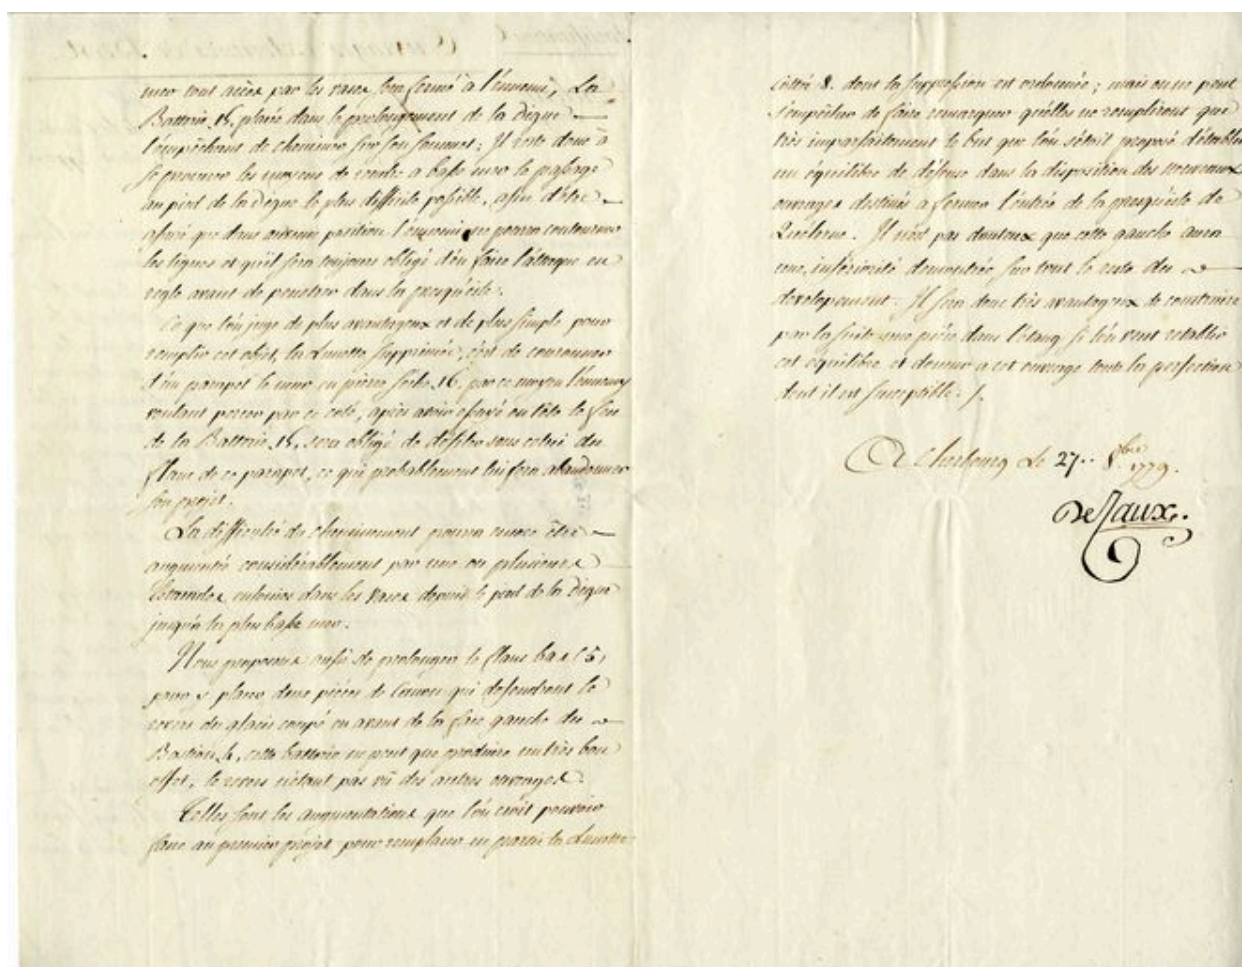 mer tout accès par les vases sera fermé à l'ennemi, La
Batterie 15, placée dans le prolongement de la Digue
l'empêchant de cheminer sur son sommet; Il reste donc à
se procurer les moyens de rendre à basse mer le passage
au pied de la Digue le plus difficile possible, afin d'être
assuré que dans aucune position l'ennemi ne pourra contourner
les lignes et qu'il sera toujours obligé d'en faire l'attaque en
regle avant de penetrer dans la presqu'isle.
Ce que l'on juge de plus avantageux et de plus simple pour
remplir cet objet, la Lunette supprimée, c'est de couronner
d'un parapet le mur en pierre seche 16, par ce moyen l'ennemy
voulant percer par ce coté, après avoir essuyé en tête le feu
de la Batterie 15, sera obligé de défiler sous celui du
flanc de ce parapet, ce qui probablement lui fera abandonner
son projet.
La difficulté du cheminement pourra encore être
augmentée considérablement par une ou plusieurs
Estacades, enfoncées dans les vases depuis le pied de la Digue
jusqu'à la plus basse mer.
Nous proposons aussi de prolonger le flanc bas 15,
pour y placer deux pièces de Canon qui defendront le
revers du glacis coupé en avant de la face gauche du
Bastion, cette batterie ne peut que produire un très bon
effet, le revers n'étant pas vû des autres ouvrages.
Telles sont les augmentations que l'on croit pouvoir
faire au premier projet pour remplacer en partie la Lunette
cottée 8. dont la suppression est ordonnée; mais on ne peut
s'empêcher de faire remarquer qu'elles ne rempliront que
très imparfaitement le but que l'on s'était proposé d'établir
un équilibre de défense dans la disposition des nouveaux
ouvrages destinés a fermer l'entrée de la presqu'isle de
Quelerne. Il n'est pas douteux que cette gauche aura
une infériorité demontrée sur tout le reste du
developement. Il sera donc très avantageux de construire
par la suite une pièce dans l'étang si l'on veut rétablir
cet équilibre et donner a cet ouvrage toute la perfection
dont il est susceptible. /.
A Cherbourg Le 27.. 8bre 1779.
DeCaux.